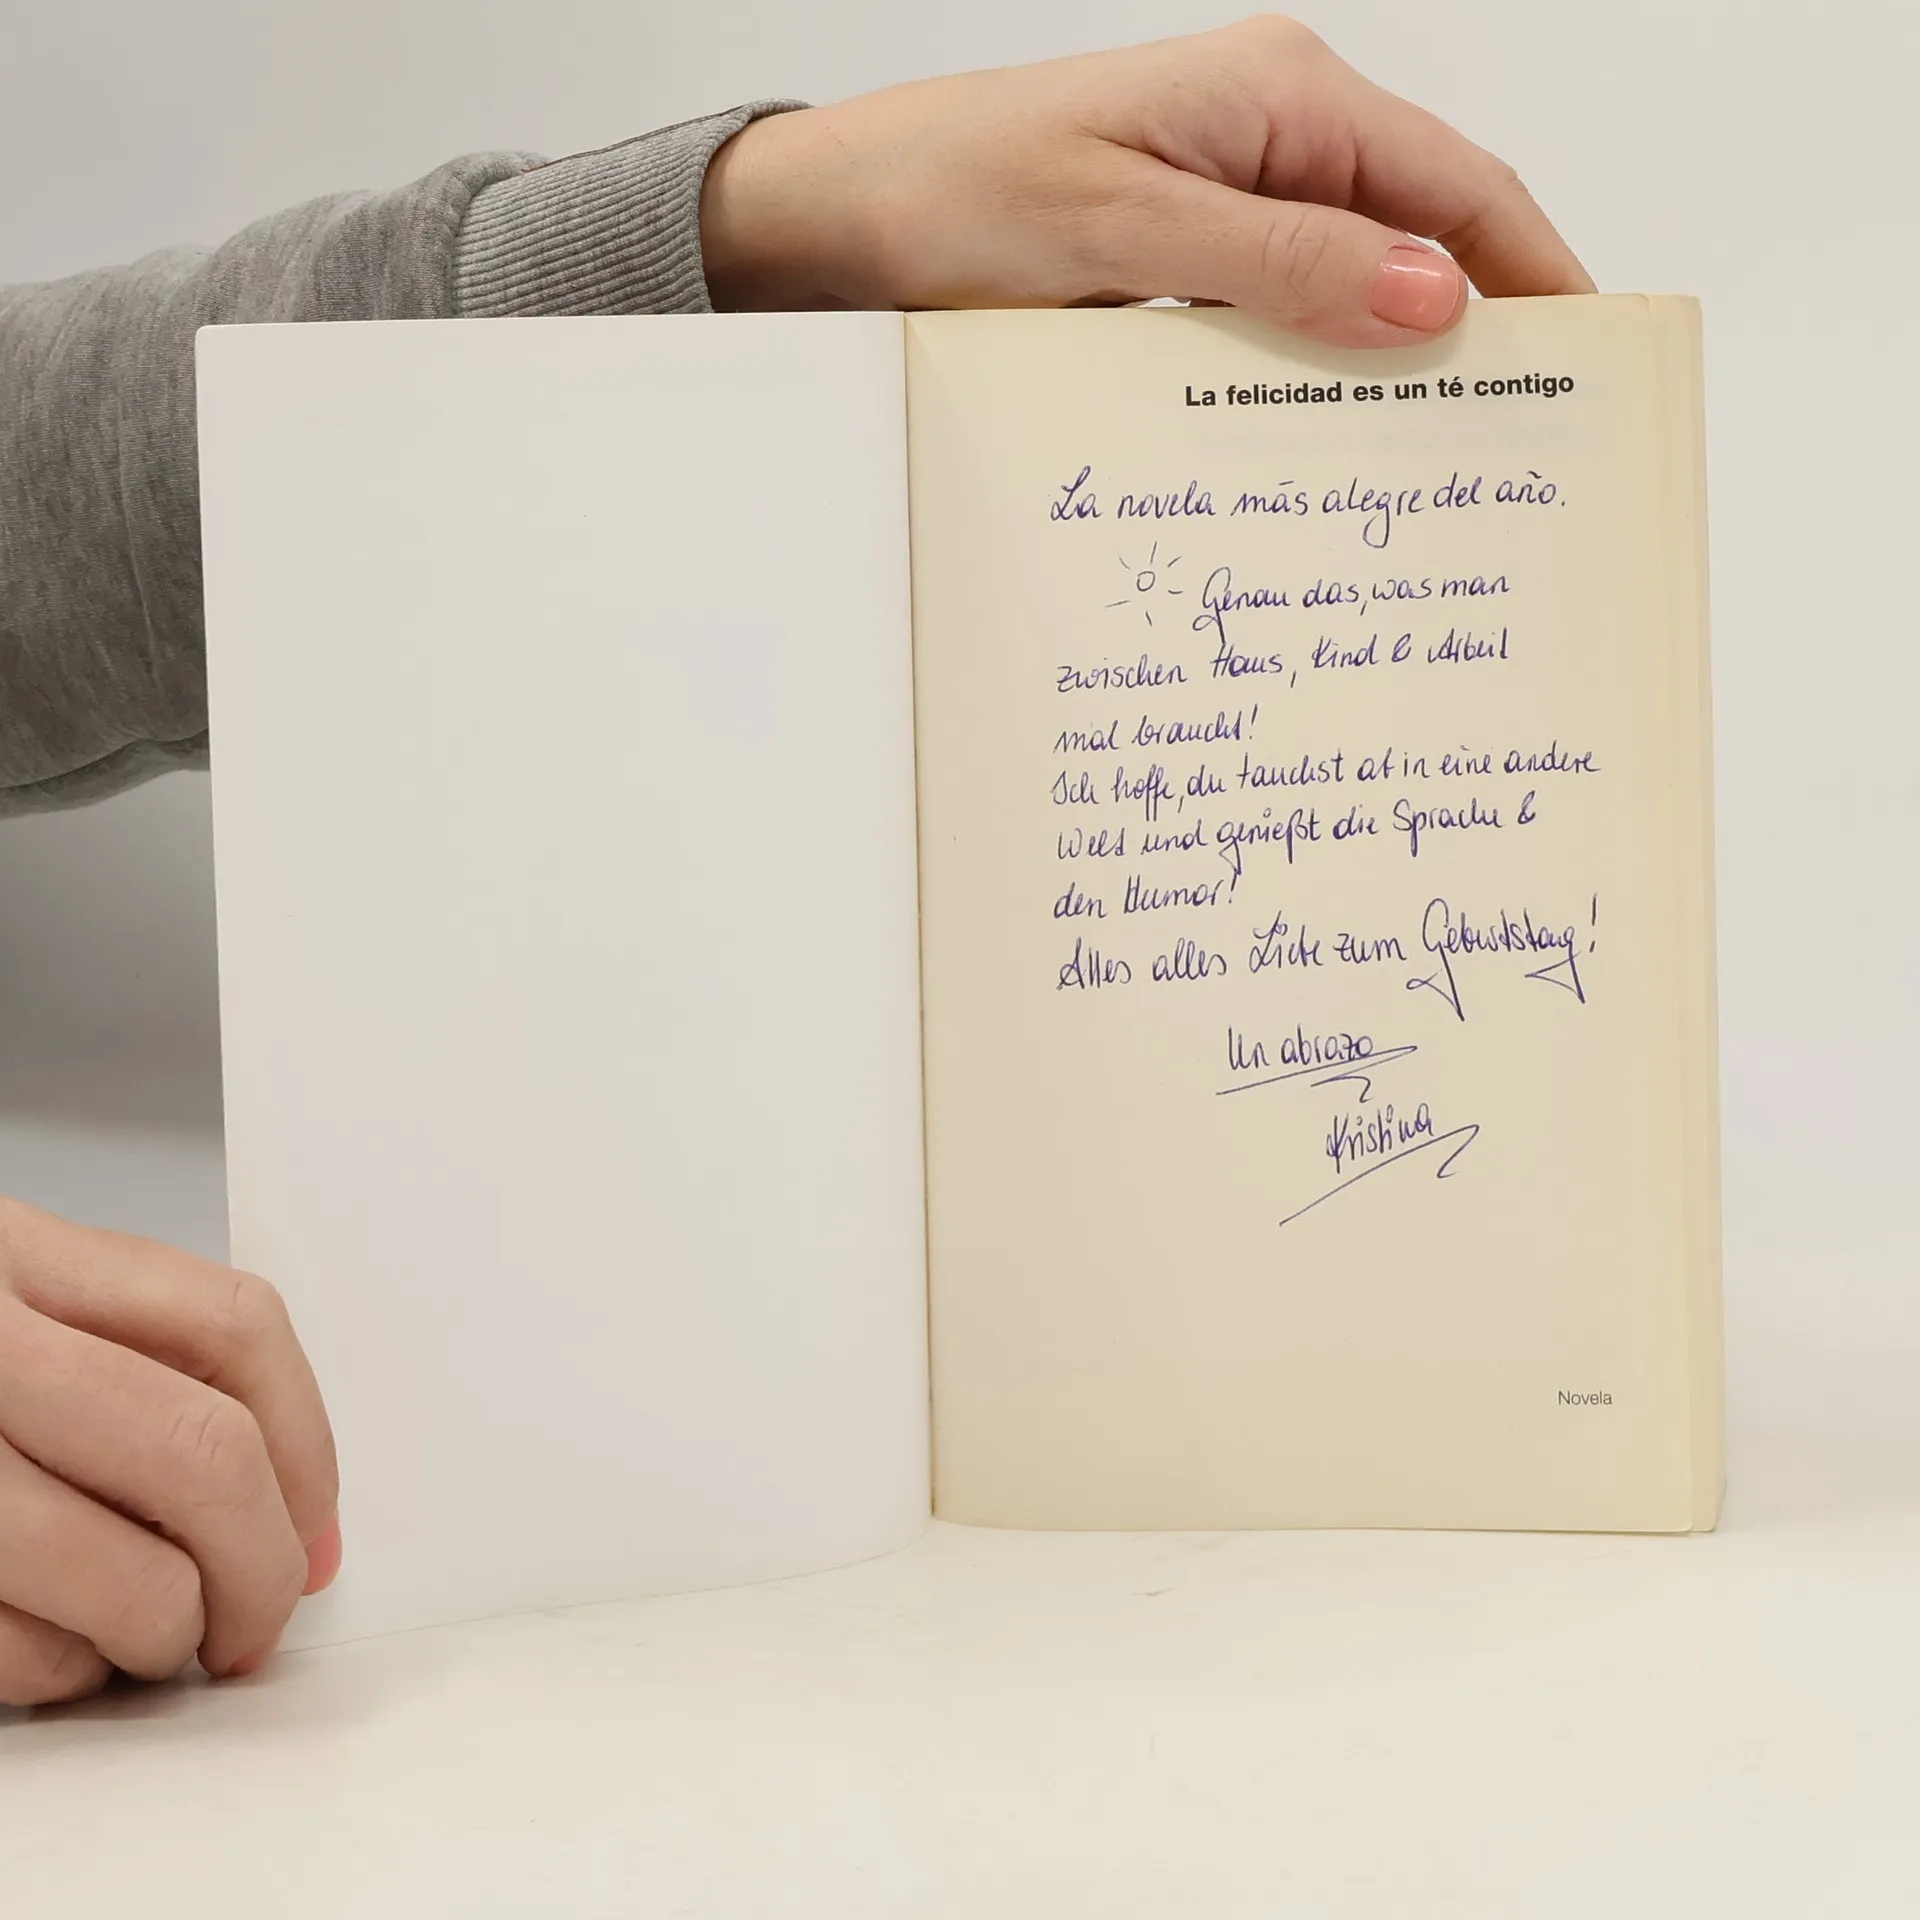 La felicidad es un té contigo
La novela más alegre del año.
Genau das, was man
zwischen Haus, Kind & Arbeit
mal braucht!
Ich hoffe, du tauchst ab in eine andere
Welt und genießt die Sprache &
den Humor!
Alles alles Liebe zum Geburtstag!
Un abrazo
Kristina
Novela